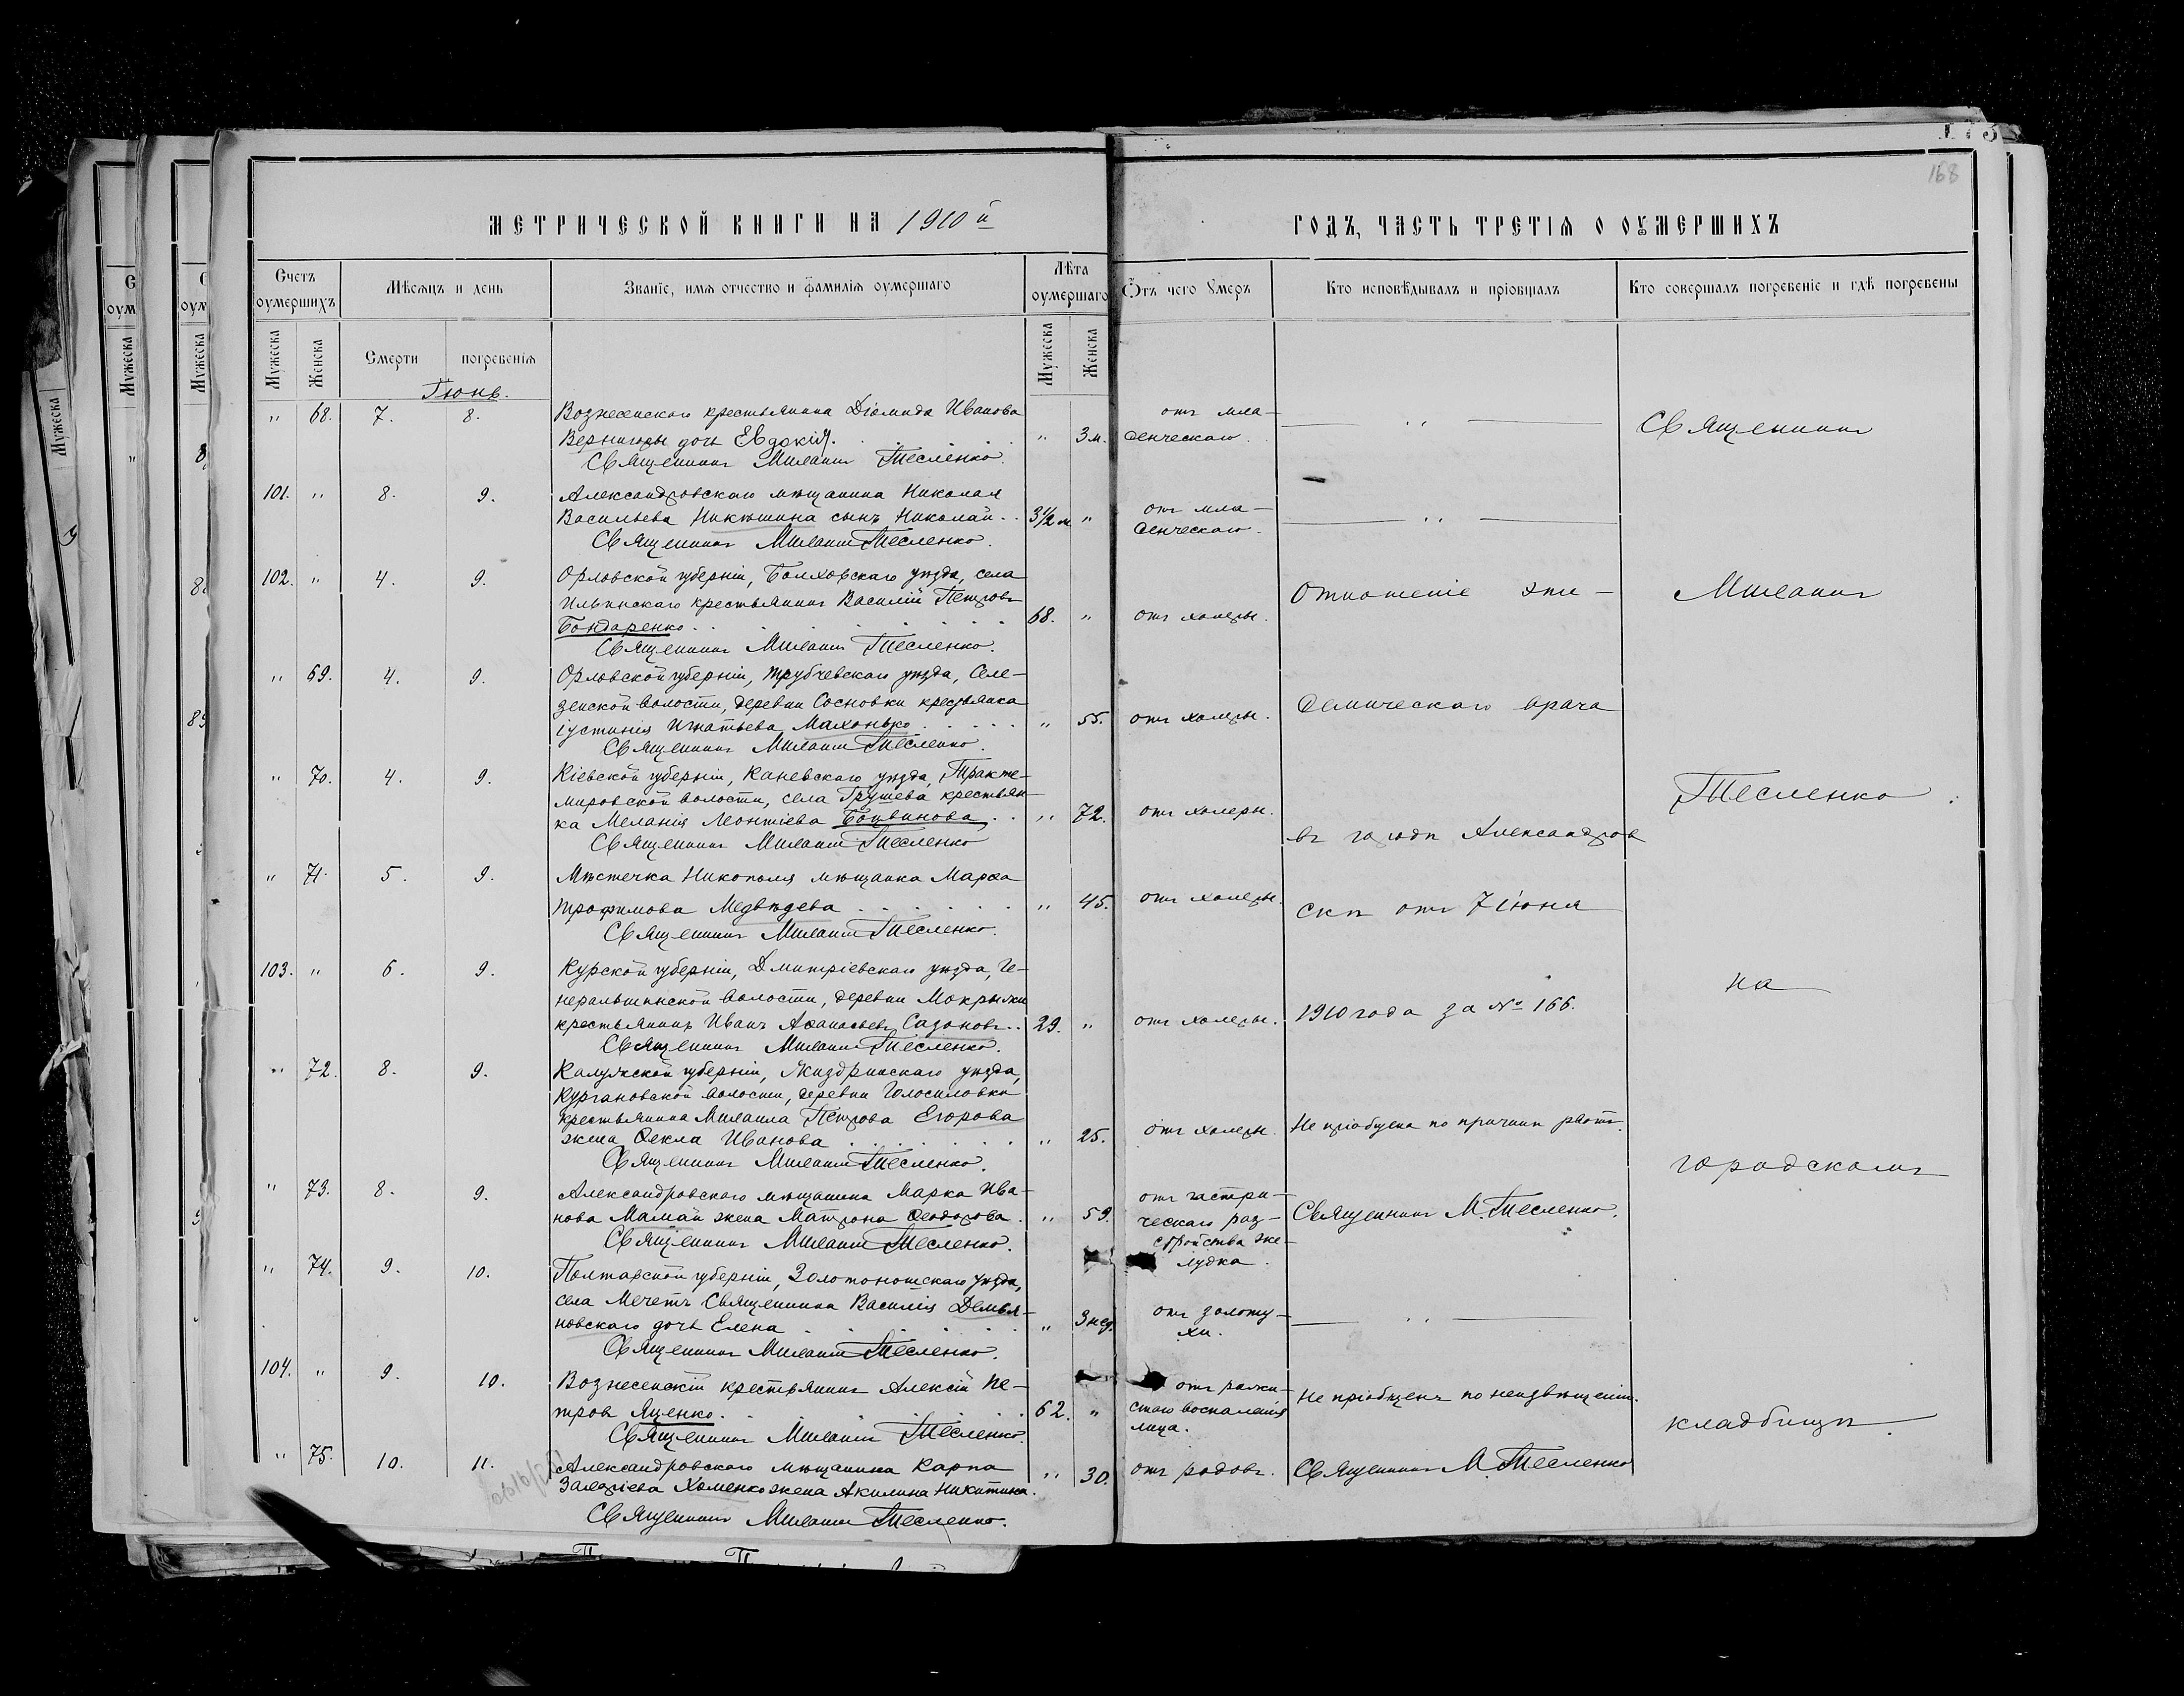 168
МЕТРИЧЕСКОЙ КНИГИ НА 1910й
ГОДЪ, ЧАСТЬ ТРЕТІЯ О ОУМЕРШИХЪ
Счетъ оумершихъ
Мѣсяцъ и день
Званіе, имя отчество и фамилія оумершаго
Лѣта оумершаго
Отъ чего Умеръ
Кто исповѣдывалъ и пріобщалъ
Кто совершалъ погребеніе и гдѣ погребены
Мужеска Женска Смерти погребенія Мужеска Женска
Іюнь.
" 68. 7. 8. Вознесенскаго крестьянина Діомида Иванова
Вернигоры дочь Евдокія. " 3 м.
отъ мла-
денческаго.
Священникъ Михаилъ Тесленко.
101. " 8. 9. Александровскаго мѣщанина Николая
Васильева Никѣшина сынъ Николай.. 3½ м "
отъ мла-
денческаго.
Священникъ Михаилъ Тесленко.
102. " 4. 9. Орловской губерніи, Болховскаго уѣзда, села
Ильинскаго крестьянинъ Василій Петровъ
Бондаренко. 68. " отъ холеры.
Священникъ Михаилъ Тесленко.
" 69. 4. 9. Орловской губерніи, Трубчевскаго уѣзда, Селе-
зенской волости, деревни Сосновки крестьянка
Іустинія Игнатьева Махонько " 55. отъ холеры.
Священникъ Михаилъ Тесленко.
" 70. 4. 9. Кіевской губерніи, Каневскаго уѣзда, Тракте-
мировской волости, села Грушева крестьян-
ка Меланія Леонтіева Боцвинова.. " 72. отъ холеры.
Священникъ Михаилъ Тесленко
" 71. 5. 9. Мѣстечка Никополя мѣщанка Марѳа
Трофимова Медвѣдева " 45. отъ холеры.
Священникъ Михаилъ Тесленко.
103. " 6. 9. Курской губерніи, Дмитріевскаго уѣзда, Ге-
неральшинской волости, деревни Мокрыжи
крестьянинъ Иванъ Аѳанасьевъ Сазоновъ.. 29. " отъ холеры.
Священникъ Михаилъ Тесленко.
" 72. 8. 9. Калужской губерніи, Жиздринскаго уѣзда,
Кургановской волости, деревни Голосиловки
крестьянина Михаила Петрова Егорова
жена Ѳекла Иванова " 25. отъ холеры. Не пріобщена по причинѣ рвотъ.
Священникъ Михаилъ Тесленко.
" 73. 8. 9. Александровскаго мѣщанина Марка Ива-
нова Мамай жена Матрона Ѳеодорова. " 59.
отъ гастри-
ческаго раз-
стройства же-
лудка.
Священникъ М. Тесленко.
Священникъ Михаилъ Тесленко.
" 74. 9. 10. Полтавской губерніи, Золотоношскаго уѣзда,
села Мечеть Священника Василія Демья-
новскаго дочь Елена " 3 нед.
отъ золоту-
хи.
Священникъ Михаилъ Тесленко.
104. " 9. 10. Вознесенскій крестьянинъ Алексій Пе-
тровъ Яценко. 62. "
отъ рожи-
стаго воспаленія
лица.
Не пріобщенъ по неизвѣщенію.
Священникъ Михаилъ Тесленко.
" 75. 10. 11. Александровскаго мѣщанина Карпа
Хоменко жена Акилина Никитина. " 30. отъ родовъ. Священникъ М. Тесленко
Священникъ Михаилъ Тесленко.
Отношеніе эпи-
демическаго врача
въ городѣ Александров
скѣ отъ 7 іюня
1910 года за № 166.
Священникъ
Михаилъ
Тесленко.
на
городскомъ
кладбищѣ.